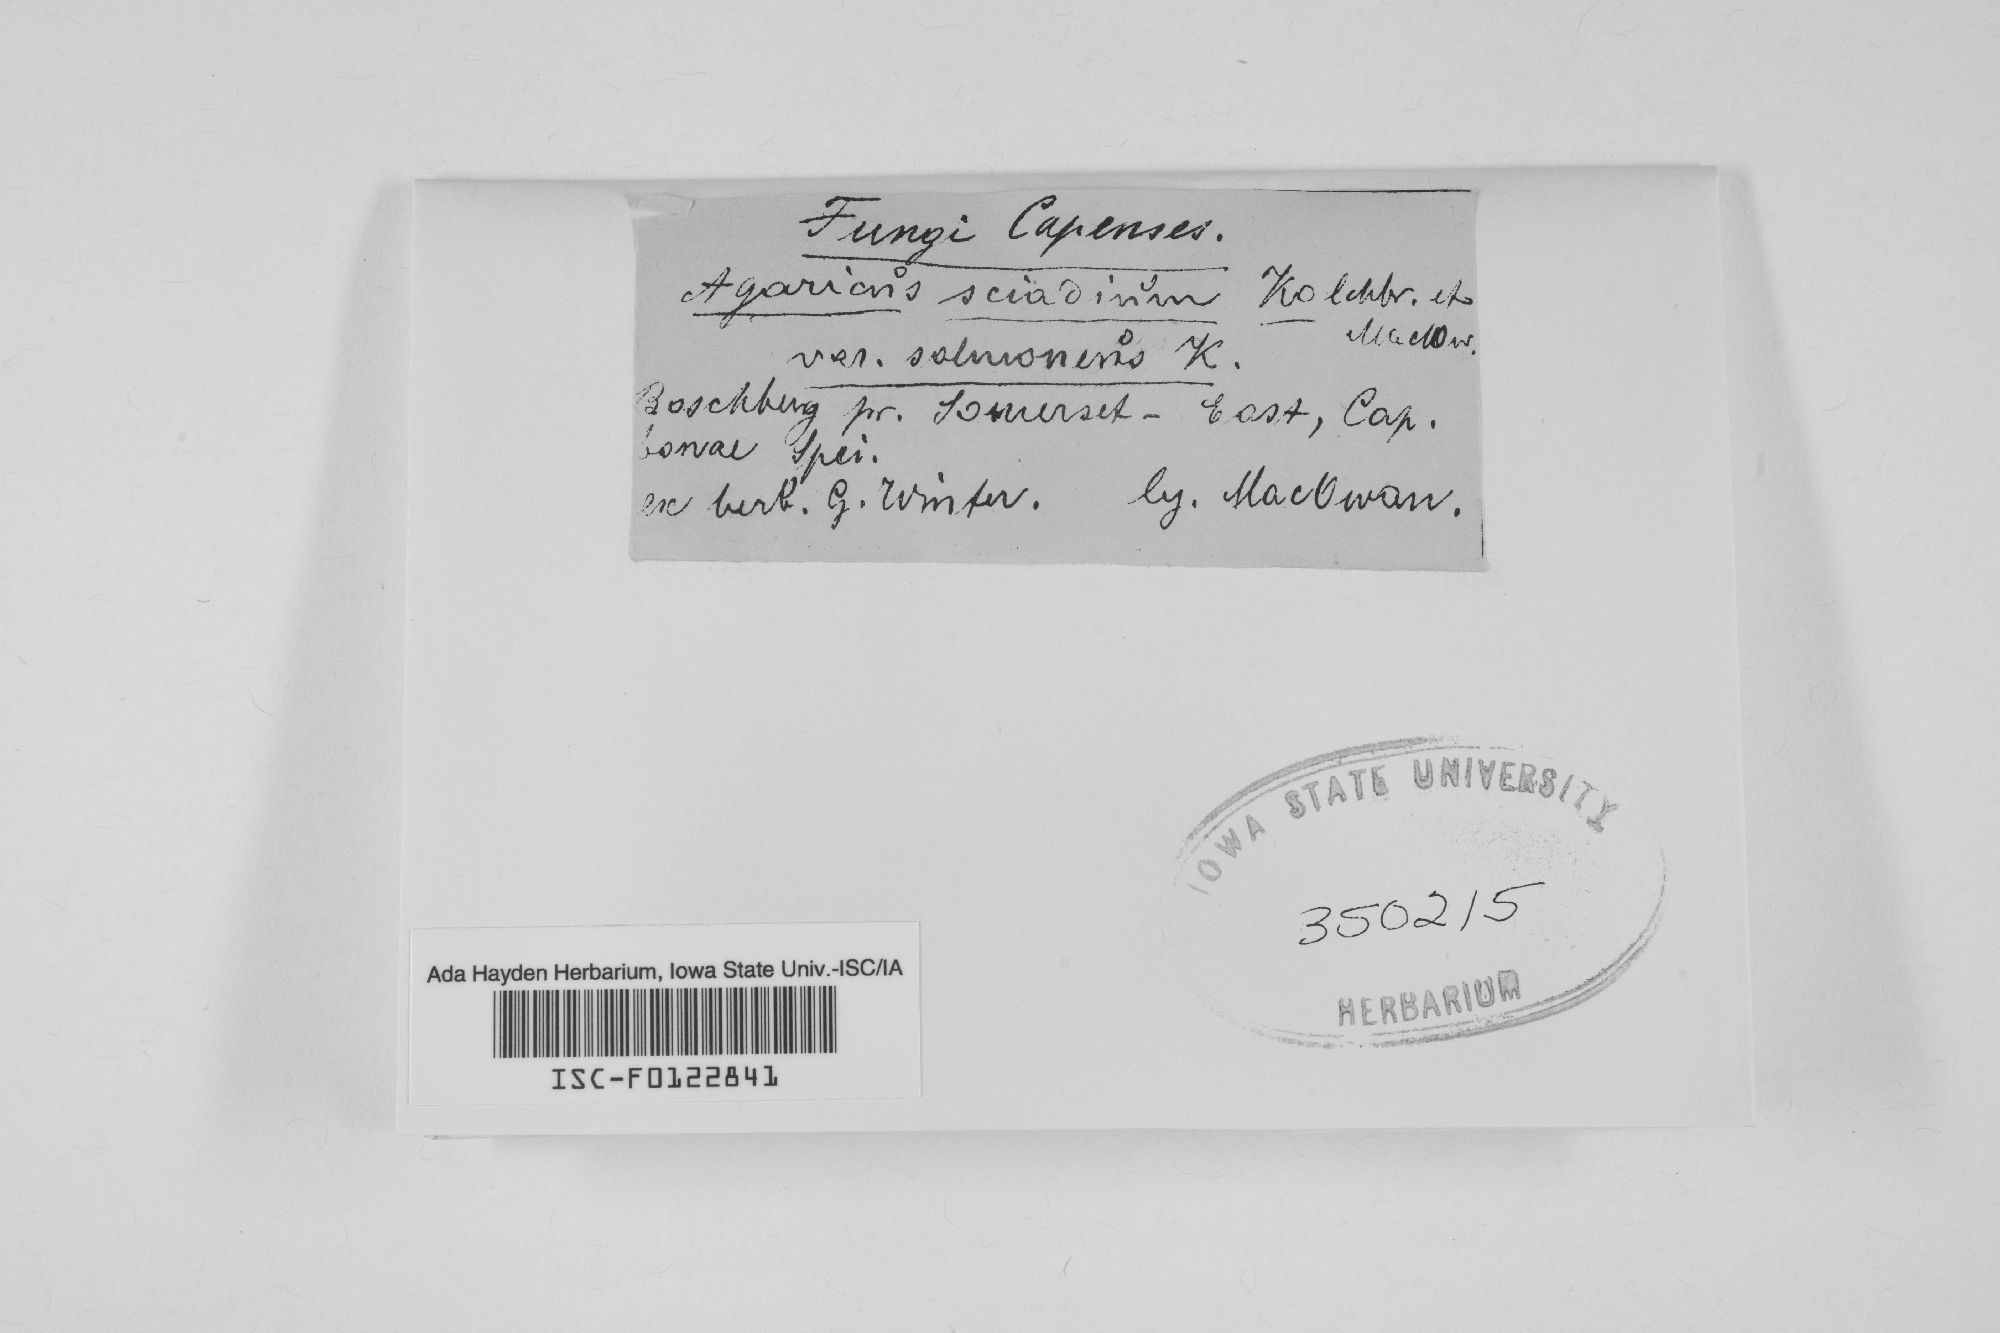 Fungi Capenses.
Agaricus sciadium Kalchbr. et
MacOw.
var. salmoneus K.
Boschberg pr. Somerset-East, Cap.
bonae Spei.
ex herb. G. Winter. lg. MacOwan.
IOWA STATE UNIVERSITY
350215
HERBARIUM
Ada Hayden Herbarium, Iowa State Univ.-ISC/IA
ISC-F0122841